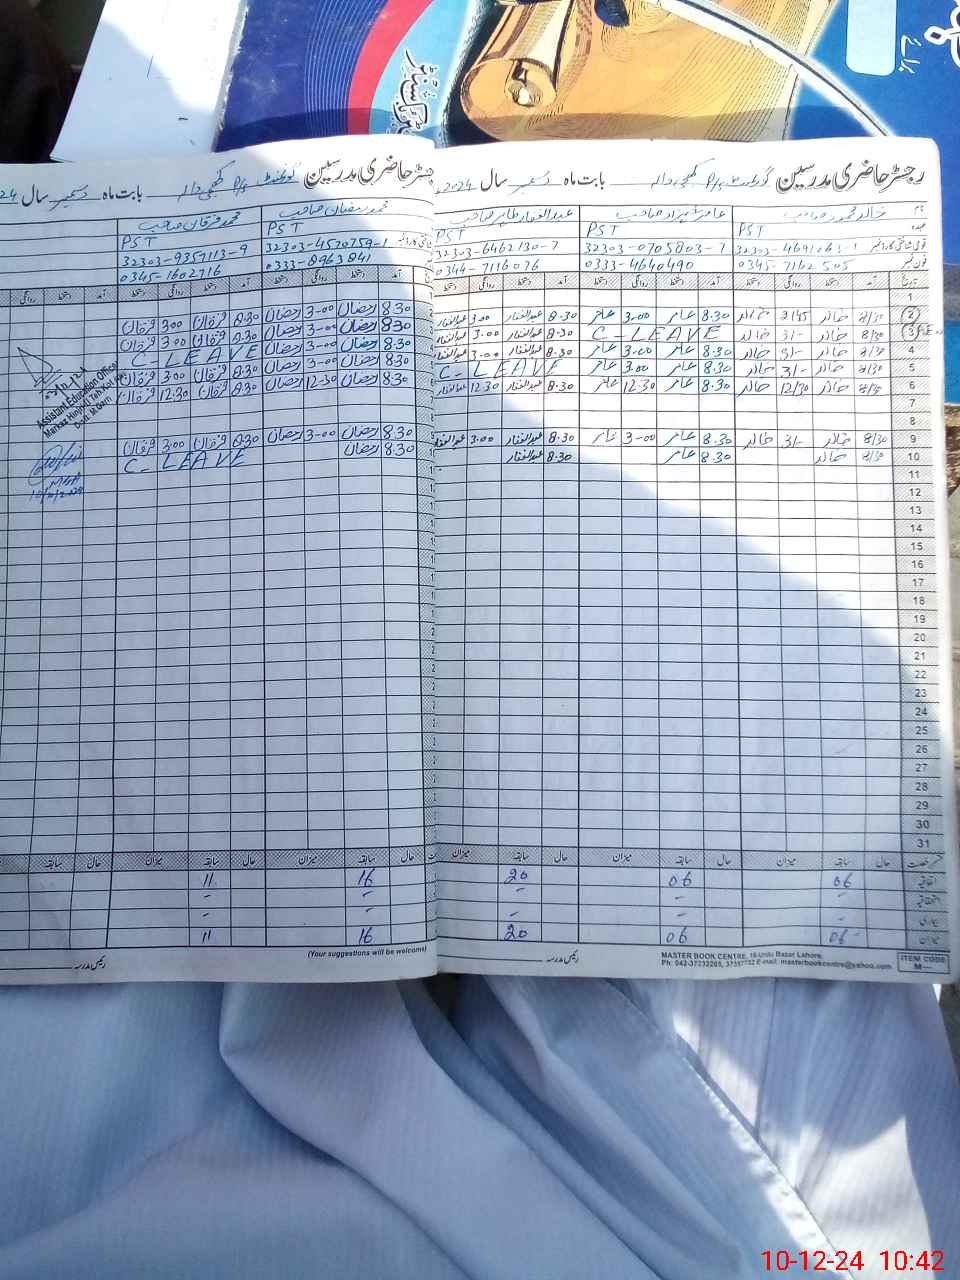 رجسٹر حاضری مدرسین گورنمنٹ P/S بابت ماہ دسمبر سال 2024
خالد محمود صاحب عامر شہزاد صاحب عبدالغفار طاہر صاحب
PST PST
32303-0705803-7 32303-6462130-7
0345-7162505 0333-4640490 0344-7116076
تاریخ آمد دستخط روانگی دستخط آمد دستخط روانگی دستخط آمد دستخط روانگی
1
2 8/30 خالد 3/45 خالد 8.30 عامر 3.00 عامر 8.30 عبدالغفار 3.00 عبدالغفار
3 8/30 خالد 3/- خالد C-LEAVE 8.30 عبدالغفار 3.00 عبدالغفار
4 8/30 خالد 3/- خالد 8.30 عامر 3.00 عامر 8.30 عبدالغفار 3.00 عبدالغفار
5 8/30 خالد 3/- خالد 8.30 عامر 3.00 عامر C-LEAVE
6 8/30 خالد 12/30 خالد 8.30 عامر 12.30 عامر 8.30 عبدالغفار 12.30 عبدالغفار
7
8
9 8/30 خالد 3/- خالد 8.30 عامر 3-00 عامر 8.30 عبدالغفار 3.00 عبدالغفار
10 8/30 خالد 8.30 عامر 8.30 عبدالغفار
11
12
13
14
15
16
17
18
19
20
21
22
23
24
25
26
27
28
29
30
31
حال سابقہ میزان حال سابقہ میزان حال سابقہ میزان
اتفاقیہ 06 06 20
استحقاقیہ - -
بیماری - - -
میزان 06 06 20
رئیس مدرسہ
MASTER BOOK CENTRE, 16-Urdu Bazar Lahore.
Ph: 042-37232205, E-mail: masterbookcentre@yahoo.com
ITEM CODE
M—
رجسٹر حاضری مدرسین گورنمنٹ P/S بابت ماہ دسمبر سال 24
محمد رمضان صاحب محمد فرقان صاحب
PST PST
32303-4570759-1 32303-9357113-9
0333-8963841 0345-1602716
آمد دستخط روانگی دستخط آمد دستخط روانگی دستخط آمد دستخط روانگی
8.30 رمضان 3-00 رمضان 8.30 فرقان 3.00 فرقان
8.30 رمضان 3-00 رمضان 8.30 فرقان 3.00 فرقان
8.30 رمضان 3-00 رمضان C-LEAVE
8.30 رمضان 3-00 رمضان 8.30 فرقان 3.00 فرقان
8.30 رمضان 12-30 رمضان 8.30 فرقان 12.30 فرقان
8.30 رمضان 3-00 رمضان 8.30 فرقان 3.00 فرقان
8.30 رمضان C-LEAVE
Assistant Education Officer
حال سابقہ میزان حال سابقہ میزان حال سابقہ
16 11
- -
- -
16 11
(Your suggestions will be welcome)
رئیس مدرسہ
10-12-24 10:42